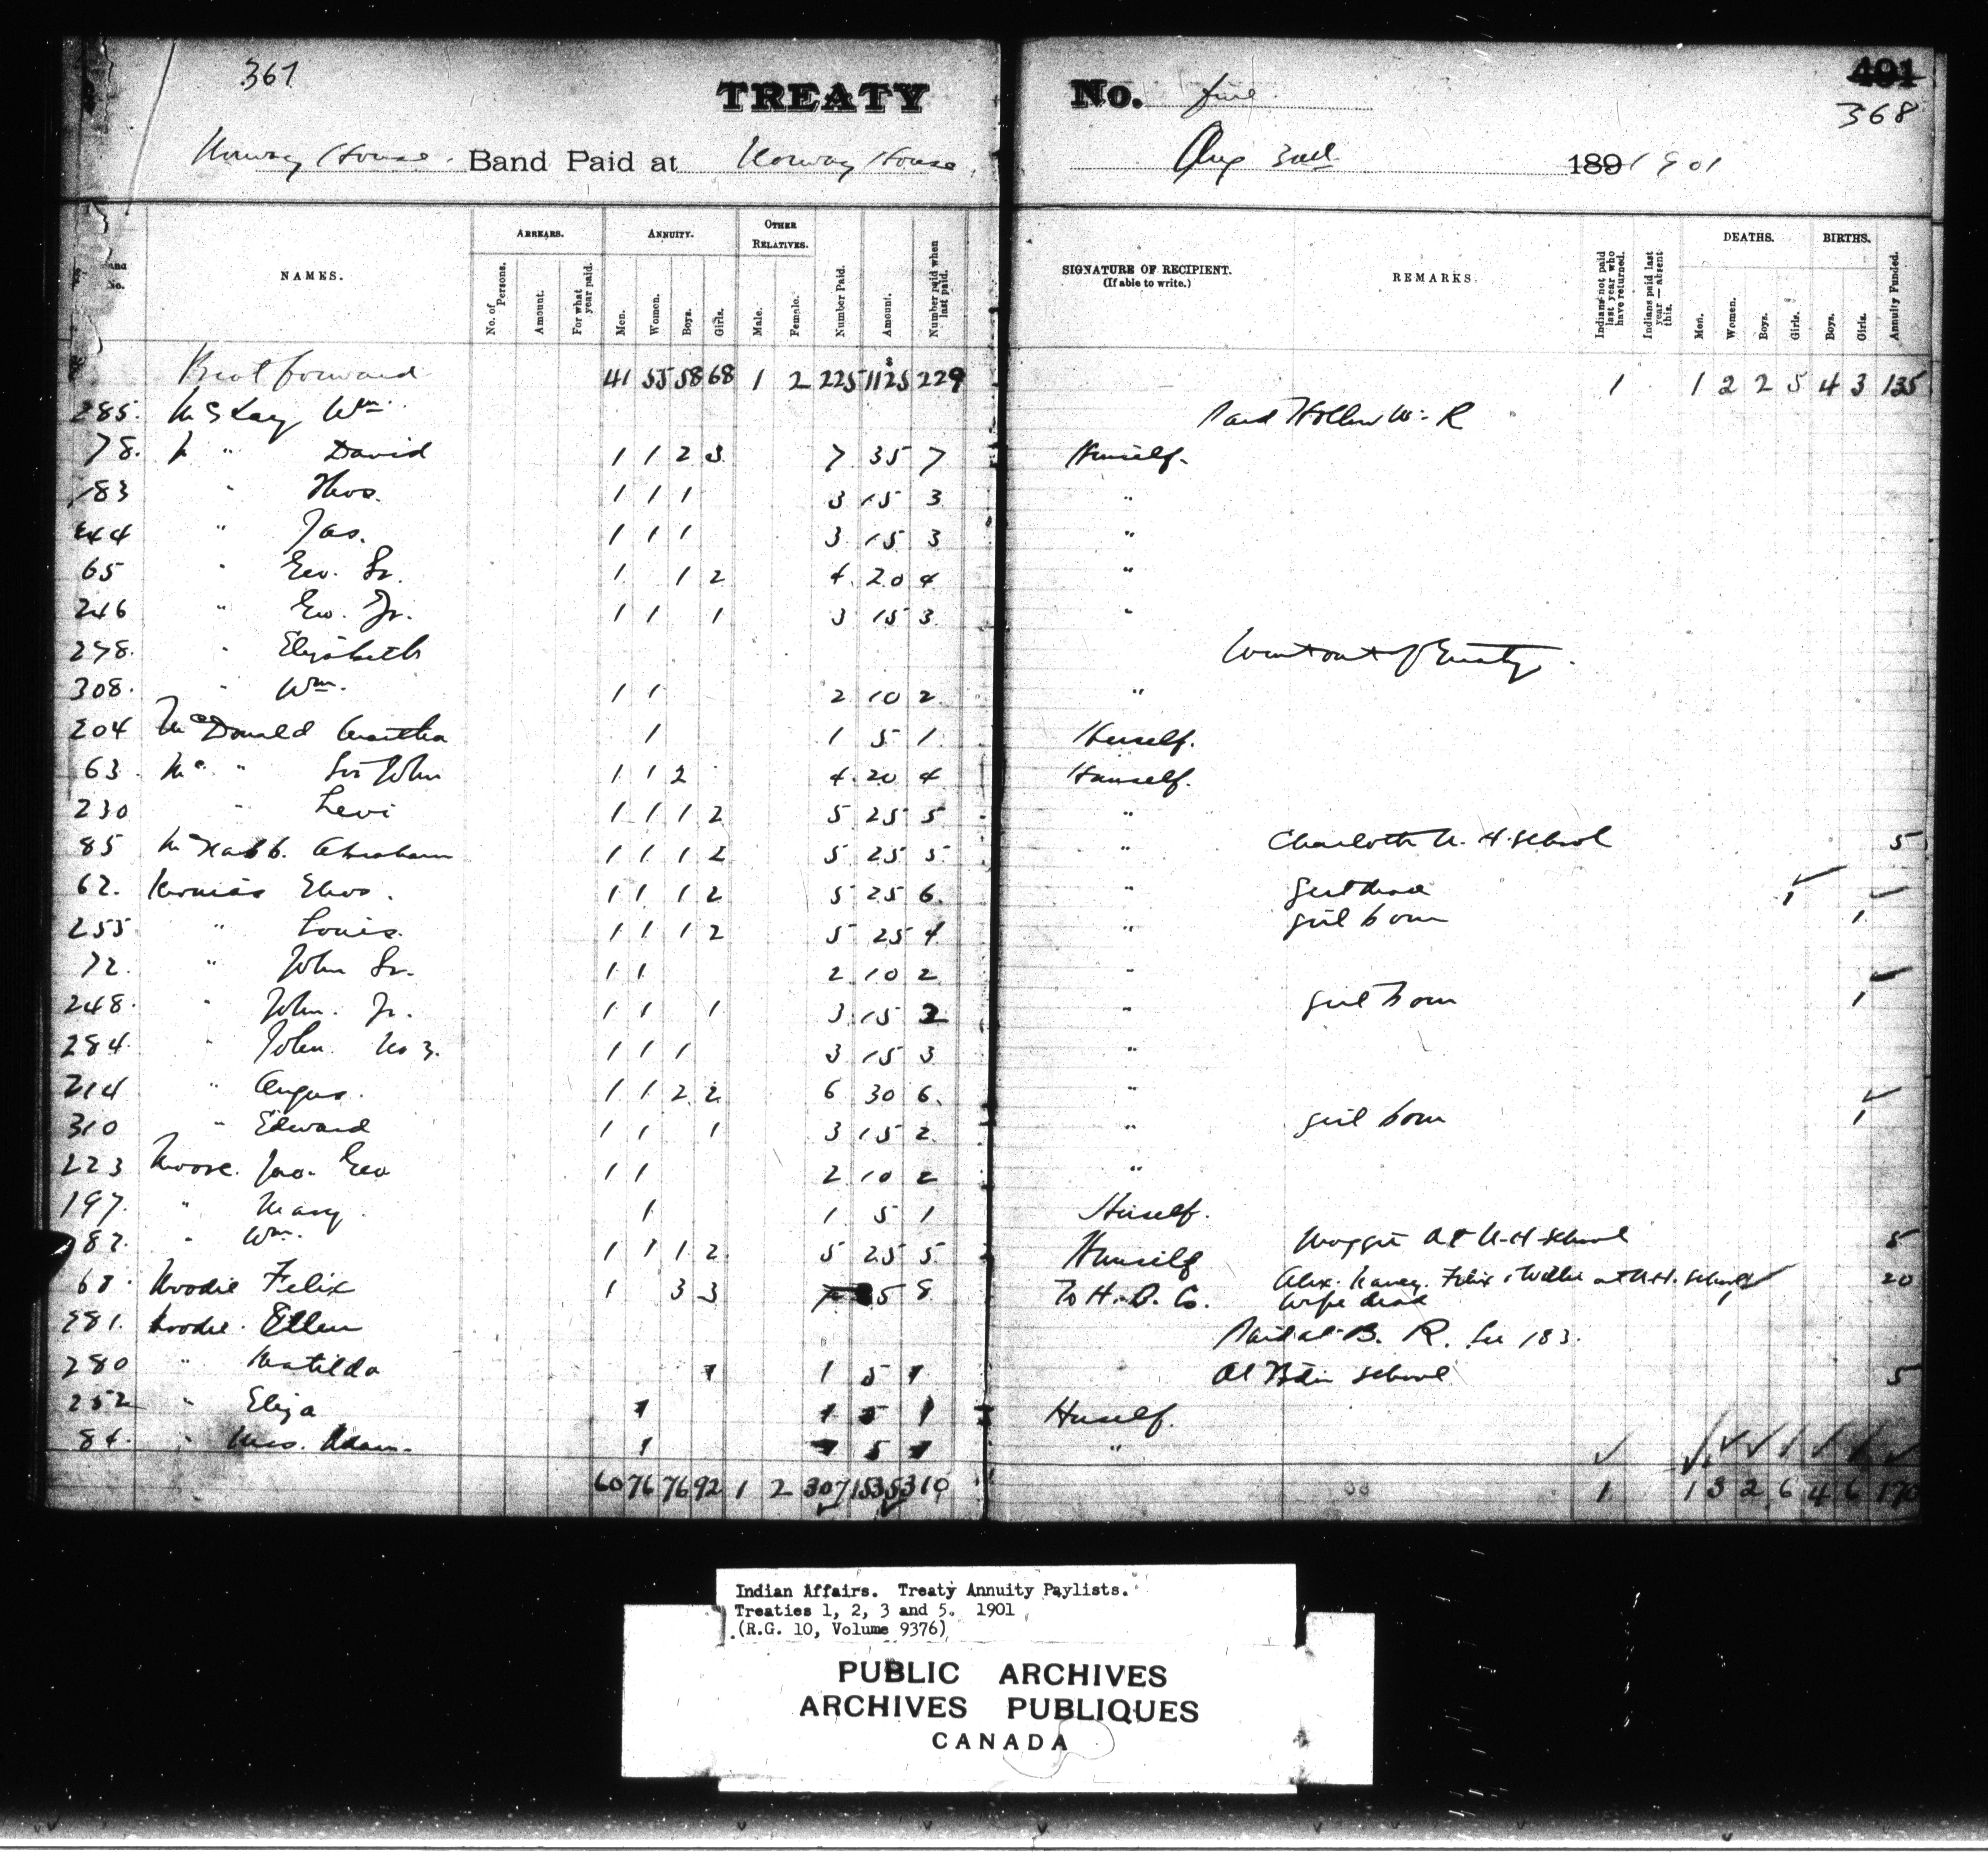 367
TREATY No. five
401
368
Norway House. Band Paid at Norway House. Aug 189 1901
Band No. NAMES. ARREARS. No. of Persons. Amount. For what year paid. ANNUITY. Men. Women. Boys. Girls. OTHER RELATIVES. Male. Female. Number Paid. Amount. Number paid when last paid. SIGNATURE OF RECIPIENT. (If able to write.) REMARKS. Indians not paid last year who have returned. Indians paid last year — absent this. DEATHS. Men. Women. Boys. Girls. BIRTHS. Boys. Girls. Annuity Funded.
Brot forward 41 55 58 68 1 2 225 $ 1125 229 1 1 2 2 5 4 3 135
285. McKay Wm. Paid R
78. " David 1 1 2 3 7 35 7 Himself.
183 " Thos. 1 1 1 3 15 3 "
244 " Jas. 1 1 1 3 15 3 "
65 " Geo. Sr. 1 1 2 4 20 4 "
246 " Geo. Jr. 1 1 1 3 15 3 "
278. " Elizabeth Went out of Treaty.
308. " Wm. 1 1 2 10 2 "
204 McDonald Martha 1 1 5 1 Herself.
63 Mc " Sir John 1 1 2 4 20 4 Himself.
230 " Levi 1 1 1 2 5 25 5 "
85 Abraham 1 1 1 2 5 25 5 " Charlotte N. H. School 5
62. 1 1 1 2 5 25 6 " girl dead 1
255 " Louis. 1 1 1 2 5 25 4 " girl born 1
72. " John Sr. 1 1 2 10 2 "
248. " John. Jr. 1 1 1 3 15 2 " girl born 1
284. " John No 3. 1 1 1 3 15 3 "
214 " Angus. 1 1 2 2 6 30 6 "
310 " Edward 1 1 1 3 15 2 " girl born 1
223 Moore. Jno. Geo 1 1 2 10 2 "
197. " Mary 1 1 5 1 Herself.
82. " Wm. 1 1 1 2 5 25 5 Himself Maggie at N.H. School 5
Moodie Felix 1 3 3 8 To H. B. Co. Alex. Nancy. Felix & Willie at N.H. School wife dead 1 20
281. Moodie. Ellen Paid at B. R. See 183.
280 " Matilda 1 1 5 1 At School 5
252 " Eliza 1 1 5 1 Herself.
84. " Mrs. Adam. 1 1 5 1 "
60 76 76 92 1 2 307 1535 310 1 1 3 2 6 4 6 170
Indian Affairs. Treaty Annuity Paylists.
Treaties 1, 2, 3 and 5. 1901
(R.G. 10, Volume 9376)
PUBLIC ARCHIVES
ARCHIVES PUBLIQUES
CANADA